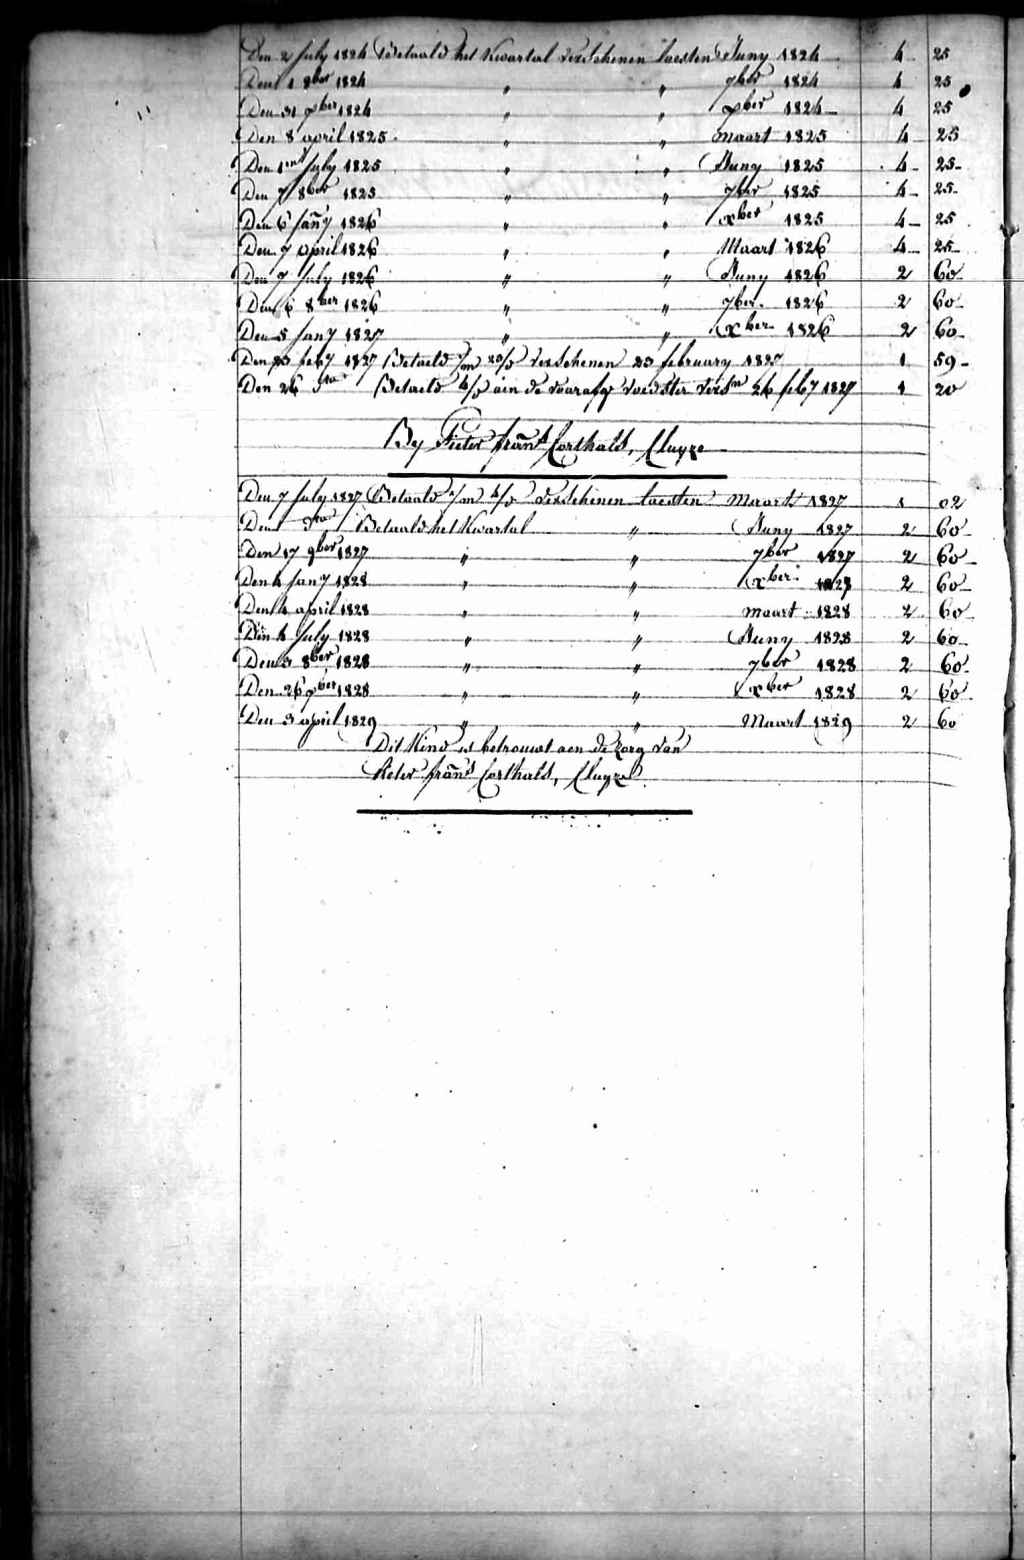 Den 2 July 1824 Betaald het Kwartal verschenen laesten Juny 1824 4 25
Den 1 8ber 1824 " " 7ber 1824 4 25
Den 31 xber 1824 " " xber 1824 4 25
Den 8 april 1825 " " Maart 1825 4 25
Den 1en July 1825 " " Juny 1825 4 25
Den 7 8ber 1825 " " 7ber 1825 4 25
Den 6 Jany 1826 " " xber 1825 4 25
Den 7 april 1826 " " Maart 1826 4 25
Den 7 July 1826 " " Juny 1826 2 60
Den 6 8ber 1826 " " 7ber 1826 2 60
Den 5 Jany 1827 " " xber 1826 2 60
Den 23 feby 1827 Betaeld verschenen 23 february 1827 1 59
Den 26 dto Betaeld aen de voorafg voedster versn 26 feby 1827 1 20
By Pieter frans Corthals, Cluyze
Den 7 July 1827 Betaald verschenen laesten Maart 1827 1 02
Den dto Betaald het Kwartal " Juny 1827 2 60
Den 17 9ber 1827 " " 7ber 1827 2 60
Den 4 Jany 1828 " " xber 1827 2 60
Den 4 april 1828 " " maart 1828 2 60
Den 4 July 1828 " " Juny 1828 2 60
Den 3 8ber 1828 " " 7ber 1828 2 60
Den 26 xber 1828 " " xber 1828 2 60
Den 3 april 1829 " " Maart 1829 2 60
Dit Kind is betrouwt aen de zorg van
Pieter frans Corthals, Cluyze